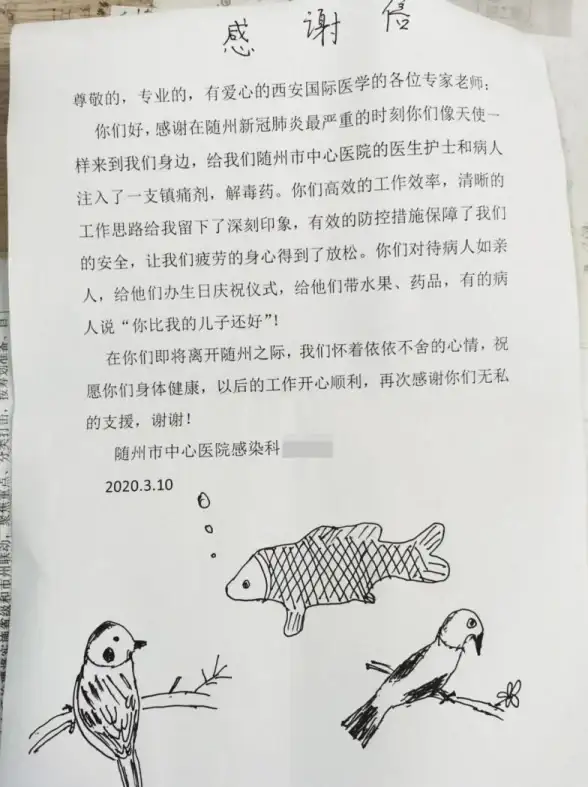 感谢信
尊敬的，专业的，有爱心的西安国际医学的各位专家老师：
你们好，感谢在随州新冠肺炎最严重的时刻你们像天使一
样来到我们身边，给我们随州市中心医院的医生护士和病人
注入了一支镇痛剂，解毒药。你们高效的工作效率，清晰的
工作思路给我留下了深刻印象，有效的防控措施保障了我们
的安全，让我们疲劳的身心得到了放松。你们对待病人如亲
人，给他们办生日庆祝仪式，给他们带水果、药品，有的病
人说“你比我的儿子还好”！
在你们即将离开随州之际，我们怀着依依不舍的心情，祝
愿你们身体健康，以后的工作开心顺利，再次感谢你们无私
的支援，谢谢！
随州市中心医院感染科
2020.3.10